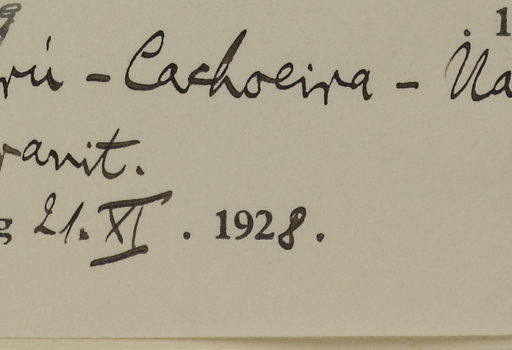 . 1
rú - Cachoeira - Na
ranit.
g 21. XI . 1928.